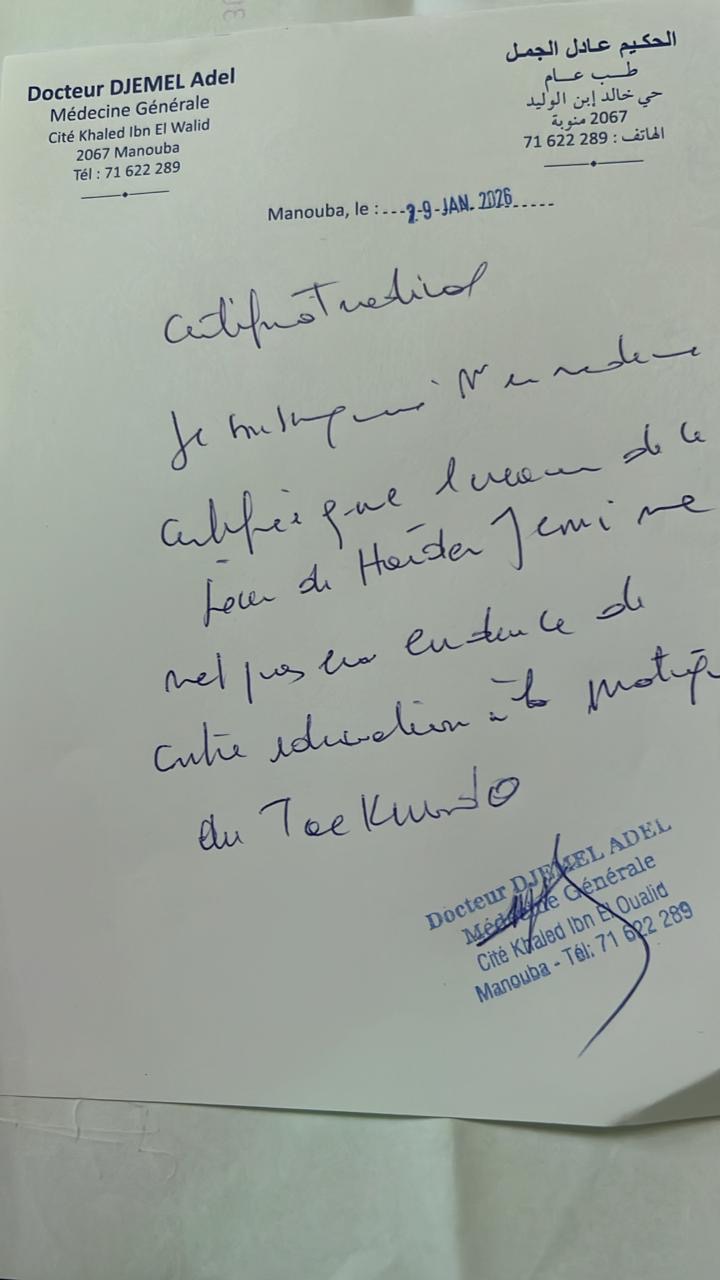 Docteur DJEMEL Adel
Médecine Générale
Cité Khaled Ibn El Walid
2067 Manouba
Tél : 71 622 289
الحكيم عادل الجمل
طـــب عـــام
حي خالد إبن الوليد
2067 منوبة
الهاتف : 289 622 71
Manouba, le : 29 JAN. 2026
Certificat médical
Je soussigné Dr en médecine
certifie que l'examen de ce
jour de Haider Jemi ne
met pas en évidence de
contre indication à la pratique
du Taekwondo
Docteur DJEMEL ADEL
Médecine Générale
Cité Khaled Ibn El Oualid
Manouba - Tél: 71 622 289